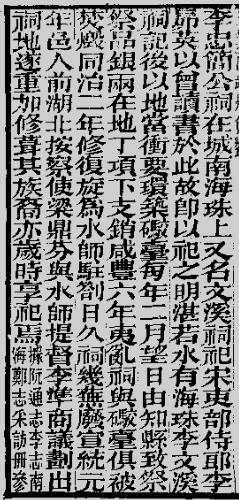 李忠簡公祠在城南海珠上又名文溪祠祀宋吏部侍郎李
昴英以曾讀書於此故即以祀之明湛若水有海珠李文溪
祠記後以地當衝要環築礮臺每年二月望日由知縣致祭
祭品銀兩在地丁項下支銷咸豐六年夷亂祠與礮臺俱被
焚燬同治二年修復旋為水師駐劄日久祠幾蕪廢宣統元
年邑人前湖北按察使梁鼎芬與水師提督李準商議劃出
祠地遂重加修葺其族裔亦歲時享祀焉據阮通志李志南
海鄭志采訪冊參